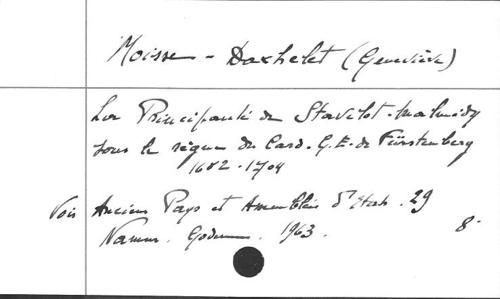 Moisse - Daxhelet (Geneviève)
La Principauté de Stavelot-Malmédy
sous le règne du Card. G.E. de Fürstenberg
1682-1704
Voir Anciens Pays et Assemblées d'États. 29
Namur. Godenne. 1963. 8°